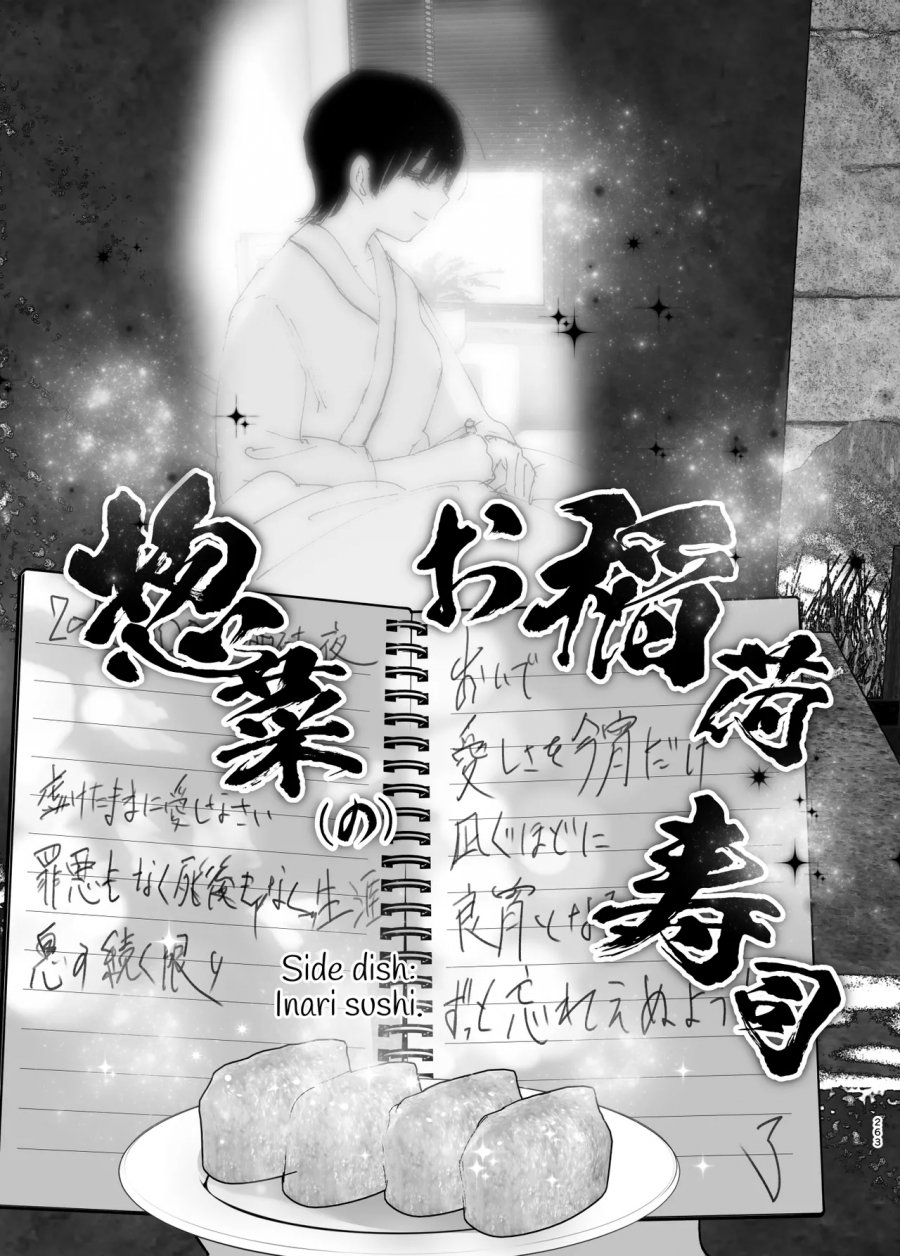 お稲荷寿司
惣菜(の)
Side dish:
Inari sushi.
夜
虚けたままに愛しなさい
罪悪もなく死後もなく生涯
息の続く限り
おいで
愛しさを今宵だけ
凪ぐほどに
良宵とな
ずっと忘れえぬよう
了
263